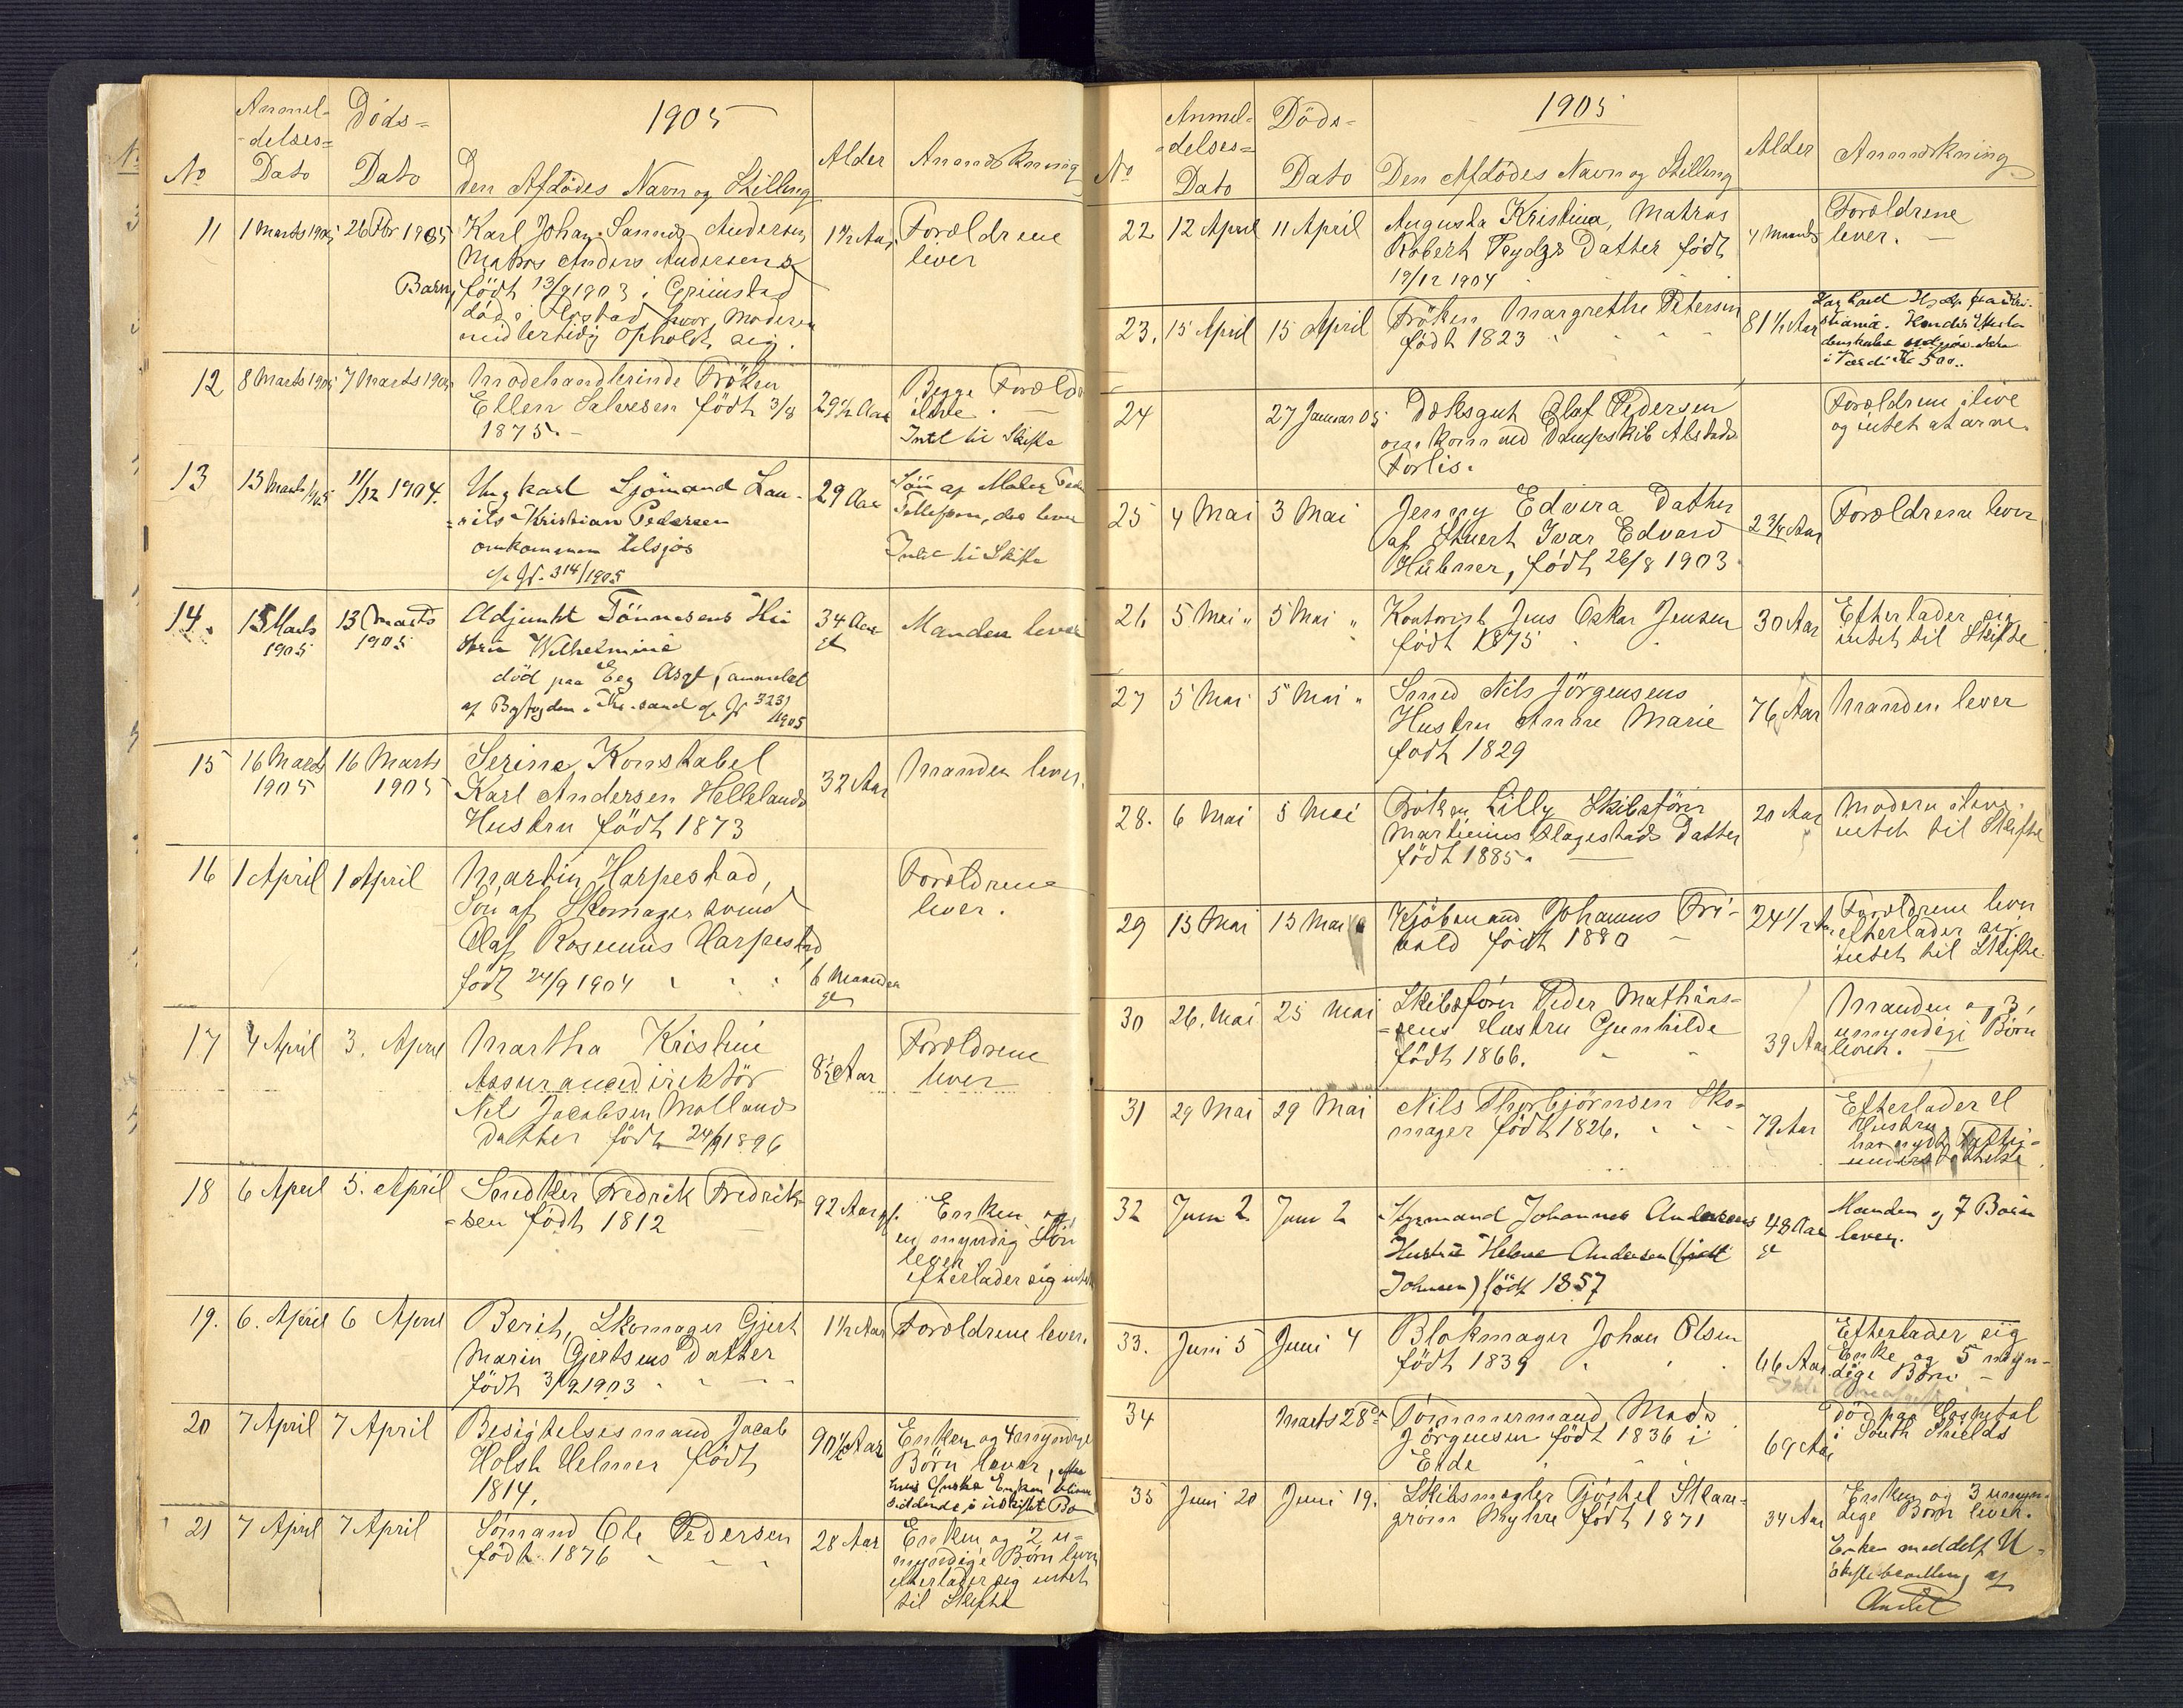 1905
No
Anmel-
-delses=
Dato
Döds=
Dato
Den Afdödes Navn og Stilling
Alder
Anmærkning
11
1 Marts 1905
26 Febr 1905
Karl Johan Andersen
Matros Anders Andersens
Barn, född 13/9 1903 i Grimstad
död i hvor Moderen
midlertidig opholdt sig.
1½ Aar
Forældrene
lever
12
8 Marts 1905
7 Marts 1905
Modehandlerinde Fröken
Ellen Salvesen född 3/8
1875.-
29½ Aar
Begge Foreld
ilive. —
Intet til Skifte
13
13 Marts 1905
11/12 1904.
Ungkarl Sjömand Lau-
=rits Kristian Pedersen
omkommen tilsjös
cfr Jr. 314/1905
29 Aar
Sön af Maler
Tellefsen, der lever
Intet til Skifte
14.
15 Marts
1905
13 Marts
1905
Adjunkt Tönnesens Hu
stru Wilhelmine
död paa Eeg Asyl, anmeldt
af Byfogden i Kr.sand cfr Jr 323/
1905
34 Aar
gl
Manden lever
15
16 Marts
1905
16 Marts
1905
Serine Konstabel
Karl Andersen Hellelands
Hustru född 1873
32 Aar
Manden lever.
16
1 April
1 April
Martin Harpestad,
Sön af Skomagersvend
Olaf Rasmus Harpestad
född 24/9 1904
6 Maaneder
gl
Forældrene
lever.
17
4 April
3. April
Martha Kristine
Assurancedirektör
Nils Jacobsen Mollands
Datter född 24/9 1896
8½ Aar
Forældrene
lever
18
6 April
5. April
Snedker Fredrik Fredrik-
=sen född 1812
92 Aar gl.
Enken og
en myndig Sön
lever
efterlader sig intet
19.
6. April
6 April
Berit, Skomager Gjert
Marin Gjertsens Datter
född 3/9 1903
1½ Aar
Forældrene lever.
20
7 April
7 April
Besigtelsesmand Jacob
Holst Helmer född
1814.
90½ Aar
Enken og 4 myndige
Börn lever,
hvis Önske Enken bliver
siddende i uskiftet Bo
21
7 April
7 April
Sömand Ole Pedersen
född 1876
28 Aar
Enken og 2 u=
myndige Börn lever
efterlader sig intet
til Skifte
1905
No
Anmel-
-delses=
Dato
Döds=
Dato
Den Afdödes Navn og Stilling
Alder
Anmærkning
22
12 April
11 April
Augusta Kristina, Matros
Robert Datter född
19/12 1904
4 Maaneder
Forældrene
lever. —
23.
15 April
15 April
Fröken Margrethe Petersen
född 1823
81½ Aar
stiania.
i Værdi Kr 500..
24
27 Januar 05
Dæksgut Olaf Pedersen
omkom ved Dampskib Alstads
Forlis.
Forældrene ilive
og intet at arve.
25
4 Mai
3 Mai
Jenny Edvira Datter
af Stuert Ivar Edvard
Hübner, född 26/8 1903.
2¾ Aar
Forældrene lever
26
5 Mai "
5 Mai "
Kontorist Jens Oskar Jensen
född 1875
30 Aar
Efterlader sig
intet til Skifte
27
5 Mai
5 Mai "
Smed Nils Jörgensens
Hustru Anne Marie
född 1829
76 Aar
Manden lever
28.
6 Mai
5 Mai
Fröken Lilly Skibsförer
Martinius Flagestads Datter
född 1885.
20 Aar
Modern ilive.
intet til Skifte
29
13 Mai
13 Mai
Kjöbmand Johannes Tri-
vold född 1880
24½ A.
Forældrene lever
efterlader sig
intet til Skifte.
30
26. Mai
25 Mai
Skibsförer Peder Mathias-
=sens Hustru Gunhilde
född 1866.
39 Aar
Manden og 3
umyndige Börn
lever. —
31
29 Mai
29 Mai
Nils Thorbjörnsen Sko=
mager född 1826.
79 Aar
Efterlader
Hustru
har nydt Fattig-
understöttelse
32
Juni 2
Juni 2
Styrmand Johannes Andersens
Hustru Helene Andersen (född
Johnsen) född 1857
48 Aar
gl
Manden og 7 Börn
lever.
33.
Juni 5
Juni 4
Blokmager Johan Olsen
född 1839
66 Aar
Efterlader sig
Enke og 5 myn-
dige Börn —
34
Marts 28de
Tömmermand Mads
Jörgensen född 1836 i
Eide
69 Aar
död paa Hospital
i South Shields
35
Juni 20
Juni 19.
Skibsmægler Tjöstel Stian-
grom Myhre född 1871
34 Aar
Enken og 3 umyn-
dige Börn lever.
Enken meddelt U-
skiftebevilling af
Amtet